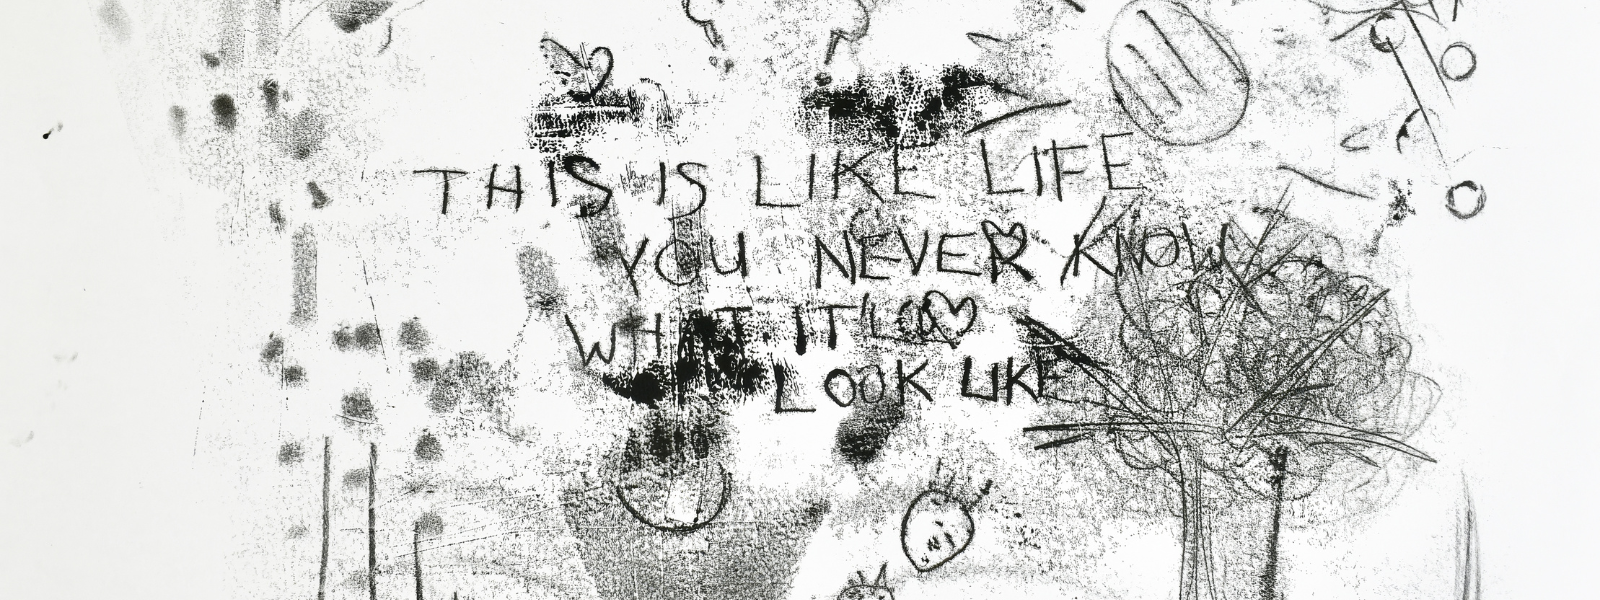 THIS IS LIKE LIFE
YOU NEVER KNOW
WHAT IT'LL
LOOK LIKE